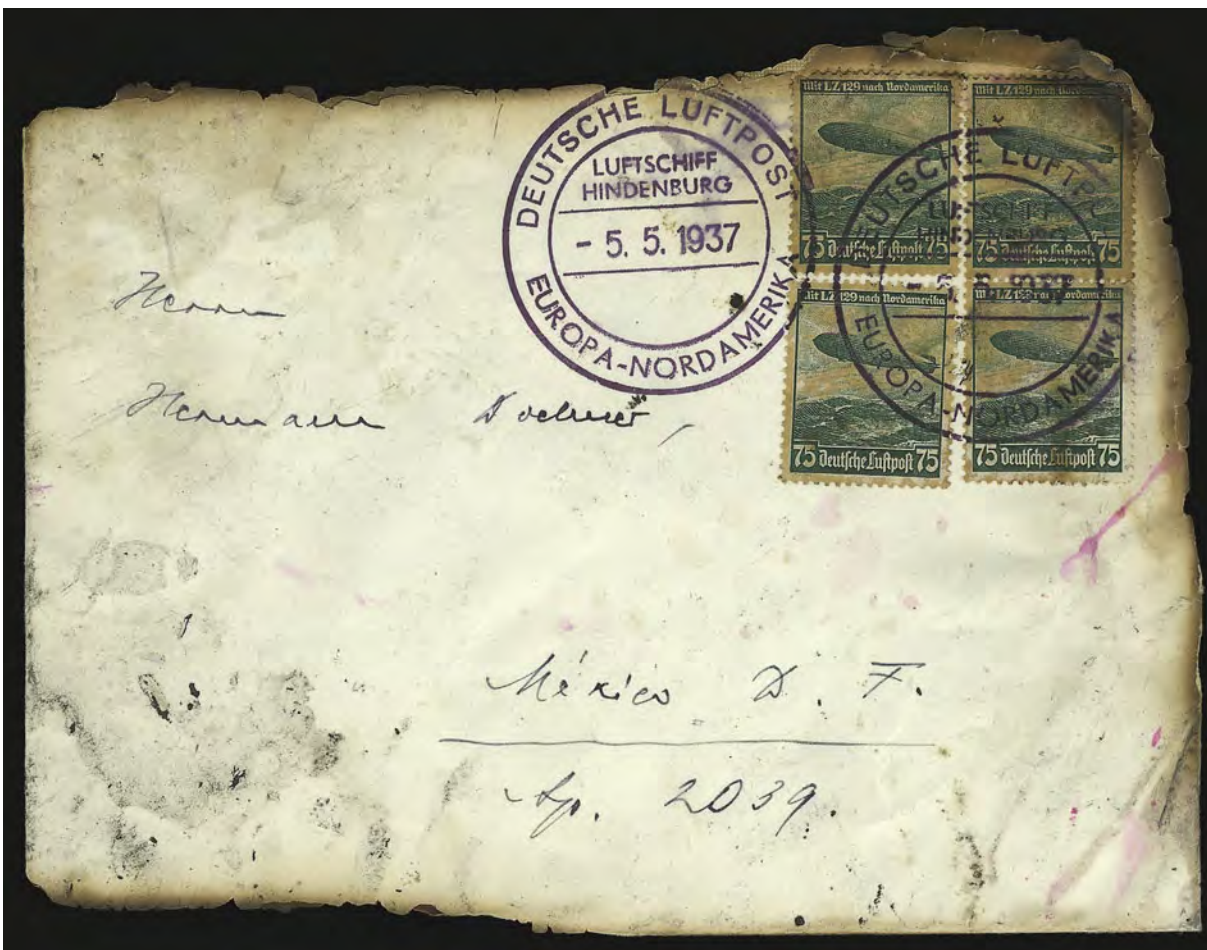 DEUTSCHE LUFTPOST
LUFTSCHIFF
HINDENBURG
- 5. 5. 1937
EUROPA-NORDAMERIKA
Mit LZ 129 nach Nordamerika
75 Deutsche Luftpost 75
Mit LZ 129 nach Nordamerika
75 Deutsche Luftpost 75
Mit LZ 129 nach Nordamerika
75 Deutsche Luftpost 75
Mit LZ 129 nach Nordamerika
75 Deutsche Luftpost 75
DEUTSCHE LUFTPO
LUFTSCHIFF
HINDENBURG
- 5. 5. 1937
EUROPA-NORDAMERIKA
Herrn
Hermann
México D. F.
Ap. 2039.